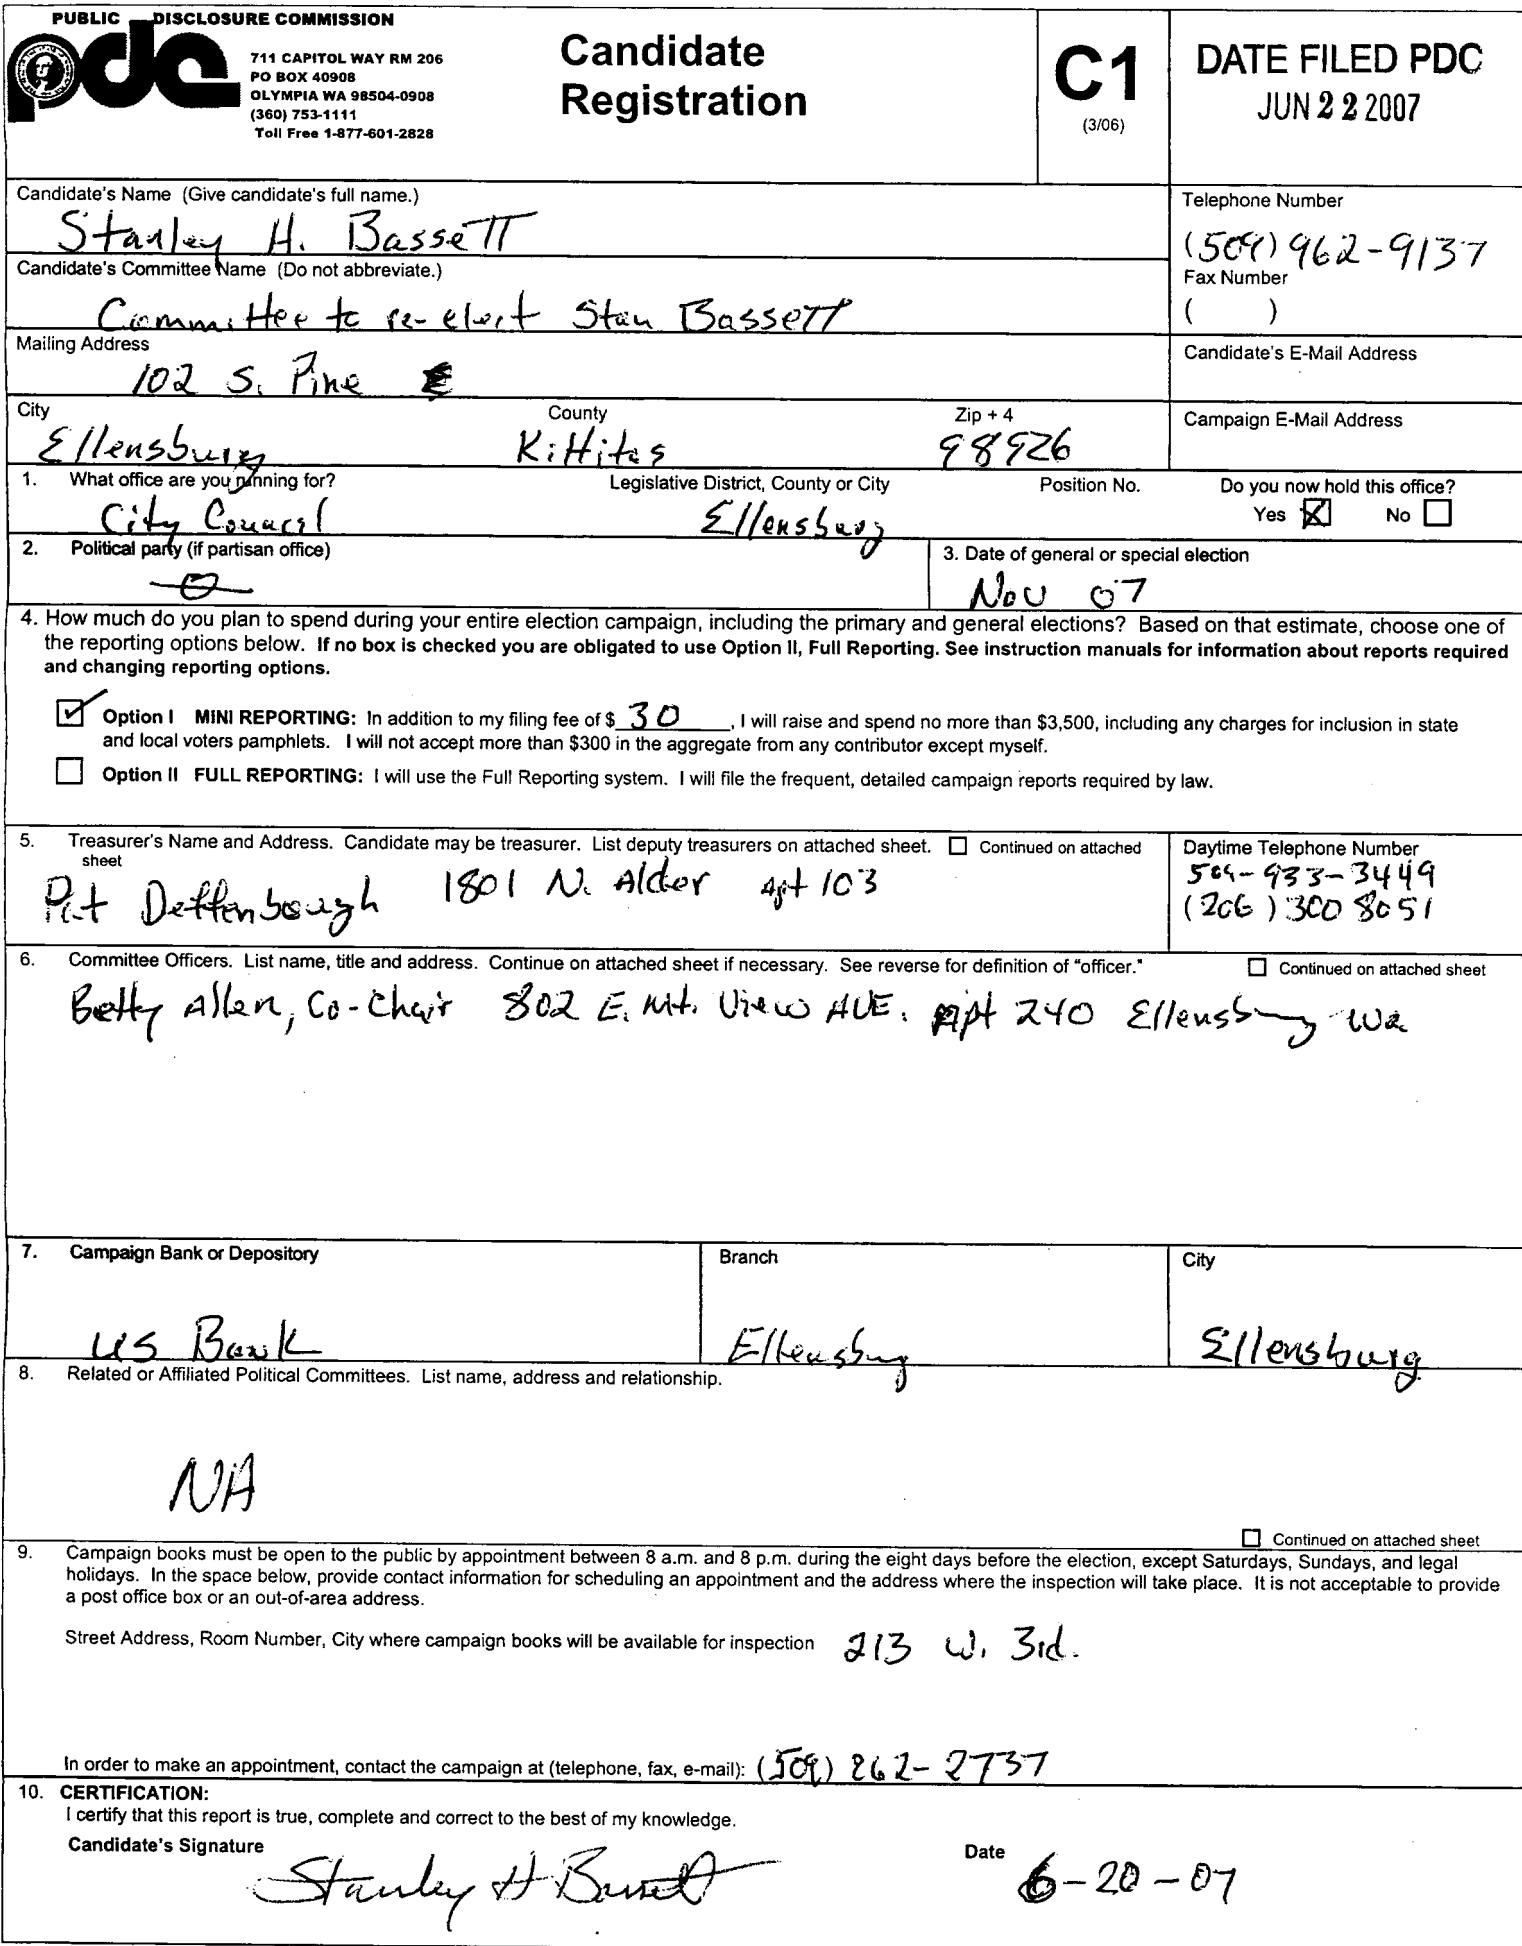 PUBLIC DISCLOSURE COMMISSION
pdc
711 CAPITOL WAY RM 206
PO BOX 40908
OLYMPIA WA 98504-0908
(360) 753-1111
Toll Free 1-877-601-2828
Candidate
Registration
C1
(3/06)
DATE FILED PDC
JUN 22 2007
Candidate's Name (Give candidate's full name.)
Stanley H. Bassett
Telephone Number
(509) 962-9137
Candidate's Committee Name (Do not abbreviate.)
Committee to re-elect Stan Bassett
Fax Number
( )
Mailing Address
102 S. Pine
Candidate's E-Mail Address
City County Zip + 4
Ellensburg Kittitas 98926
Campaign E-Mail Address
1. What office are you running for? Legislative District, County or City Position No. Do you now hold this office?
City Council Ellensburg Yes No
2. Political party (if partisan office) 3. Date of general or special election
Nov 07
4. How much do you plan to spend during your entire election campaign, including the primary and general elections? Based on that estimate, choose one of
the reporting options below. If no box is checked you are obligated to use Option II, Full Reporting. See instruction manuals for information about reports required
and changing reporting options.
Option I MINI REPORTING: In addition to my filing fee of $ 30, I will raise and spend no more than $3,500, including any charges for inclusion in state
and local voters pamphlets. I will not accept more than $300 in the aggregate from any contributor except myself.
Option II FULL REPORTING: I will use the Full Reporting system. I will file the frequent, detailed campaign reports required by law.
5. Treasurer's Name and Address. Candidate may be treasurer. List deputy treasurers on attached sheet. Continued on attached
sheet
Pat Deffenbough 1801 N. Alder Apt 103
Daytime Telephone Number
509-933-3449
(206) 300 8051
6. Committee Officers. List name, title and address. Continue on attached sheet if necessary. See reverse for definition of "officer." Continued on attached sheet
Betty Allen, Co-Chair 802 E. Mt. View AVE. Apt 240 Ellensburg Wa
7. Campaign Bank or Depository Branch City
US Bank Ellensburg Ellensburg
8. Related or Affiliated Political Committees. List name, address and relationship.
NA
Continued on attached sheet
9. Campaign books must be open to the public by appointment between 8 a.m. and 8 p.m. during the eight days before the election, except Saturdays, Sundays, and legal
holidays. In the space below, provide contact information for scheduling an appointment and the address where the inspection will take place. It is not acceptable to provide
a post office box or an out-of-area address.
Street Address, Room Number, City where campaign books will be available for inspection 213 W. 3rd.
In order to make an appointment, contact the campaign at (telephone, fax, e-mail): (509) 262-2737
10. CERTIFICATION:
I certify that this report is true, complete and correct to the best of my knowledge.
Candidate's Signature Date
Stanley H Bassett 6-20-07